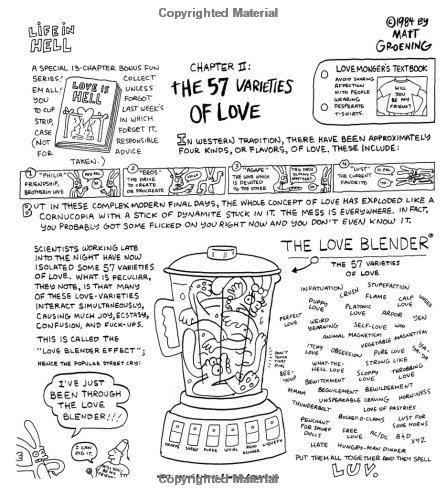 Copyrighted Material
LIFE IN
HELL
©1984 BY
MATT
GROENING
A SPECIAL 13-CHAPTER BONUS FUN
SERIES! COLLECT
'EM ALL! UNLESS
YOU FORGOT
TO CLIP LAST WEEK'S
STRIP, IN WHICH
CASE FORGET IT.
(NOT RESPONSIBLE
FOR ADVICE
TAKEN.)
LOVE IS
HELL
CHAPTER II:
THE 57 VARIETIES
OF LOVE
LOVEMONGER'S TEXTBOOK
AVOID SHARING
AFFECTION
WITH PEOPLE
WEARING
DESPERATE
T-SHIRTS.
WILL
YOU BE
MY FRIEND?
IN WESTERN TRADITION, THERE HAVE BEEN APPROXIMATELY
FOUR KINDS, OR FLAVORS, OF LOVE. THESE INCLUDE:
1 "PHILIA"
FRIENDSHIP,
BROTHERLY LOVE
2 "EROS"
THE DRIVE
TO CREATE
OR PROCREATE
3 "AGAPE"
THE LOVE WHICH
IS DEVOTED
TO THE OTHER
4 "LUST"
THE CURRENT
FAVORITE
BUT IN THESE COMPLEX MODERN FINAL DAYS, THE WHOLE CONCEPT OF LOVE HAS EXPLODED LIKE A
CORNUCOPIA WITH A STICK OF DYNAMITE STUCK IN IT. THE MESS IS EVERYWHERE. IN FACT,
YOU PROBABLY GOT SOME FLICKED ON YOU RIGHT NOW AND YOU DON'T EVEN KNOW IT.
SCIENTISTS WORKING LATE
INTO THE NIGHT HAVE NOW
ISOLATED SOME 57 VARIETIES
OF LOVE. WHAT IS PECULIAR,
THEY NOTE, IS THAT MANY
OF THESE LOVE-VARIETIES
INTERACT SIMULTANEOUSLY,
CAUSING MUCH JOY, ECSTASY,
CONFUSION, AND FUCK-UPS.
THIS IS CALLED THE
"LOVE BLENDER EFFECT";
HENCE THE POPULAR STREET CRY:
I'VE JUST
BEEN THROUGH
THE LOVE
BLENDER!!!
I CAN
DIG IT.
WILL YOU
BE MY
FRIEND?
THE LOVE BLENDER®
THE 57 VARIETIES
OF LOVE
INFATUATION
CRUSH
STUPEFACTION
PUPPY
LOVE
FLAME
CALF
LOVE
PLATONIC
LOVE
ARDOR
YEN
PERFECT
LOVE
WEIRD
YEARNING
SELF-LOVE
WOO
ANIMAL MAGNETISM
VEGETABLE MAGNETISM
ITCHY
LOVE
OBSESSION
PURE LOVE
WHAT-THE-
HELL LOVE
STRONG LIKE
SLOPPY
LOVE
THROBBING
LOVE
BEWITCHMENT
MMMM
BEGUILEMENT
BEWILDERMENT
UNSPEAKABLE CRAVING
HORNINESS
THUNDERBOLT
LOVE OF PASTRIES
PENCHANT
FOR SMURF
DOLLS
LUST FOR
SHOE HORNS
FREE
LOVE
AC/DC
HATE
HUNGRY-MAN DINNER
XYZ
PUT THEM ALL TOGETHER AND THEY SPELL
LUV.
PUREE
WHIRL
LIQUEFY
Copyrighted Material